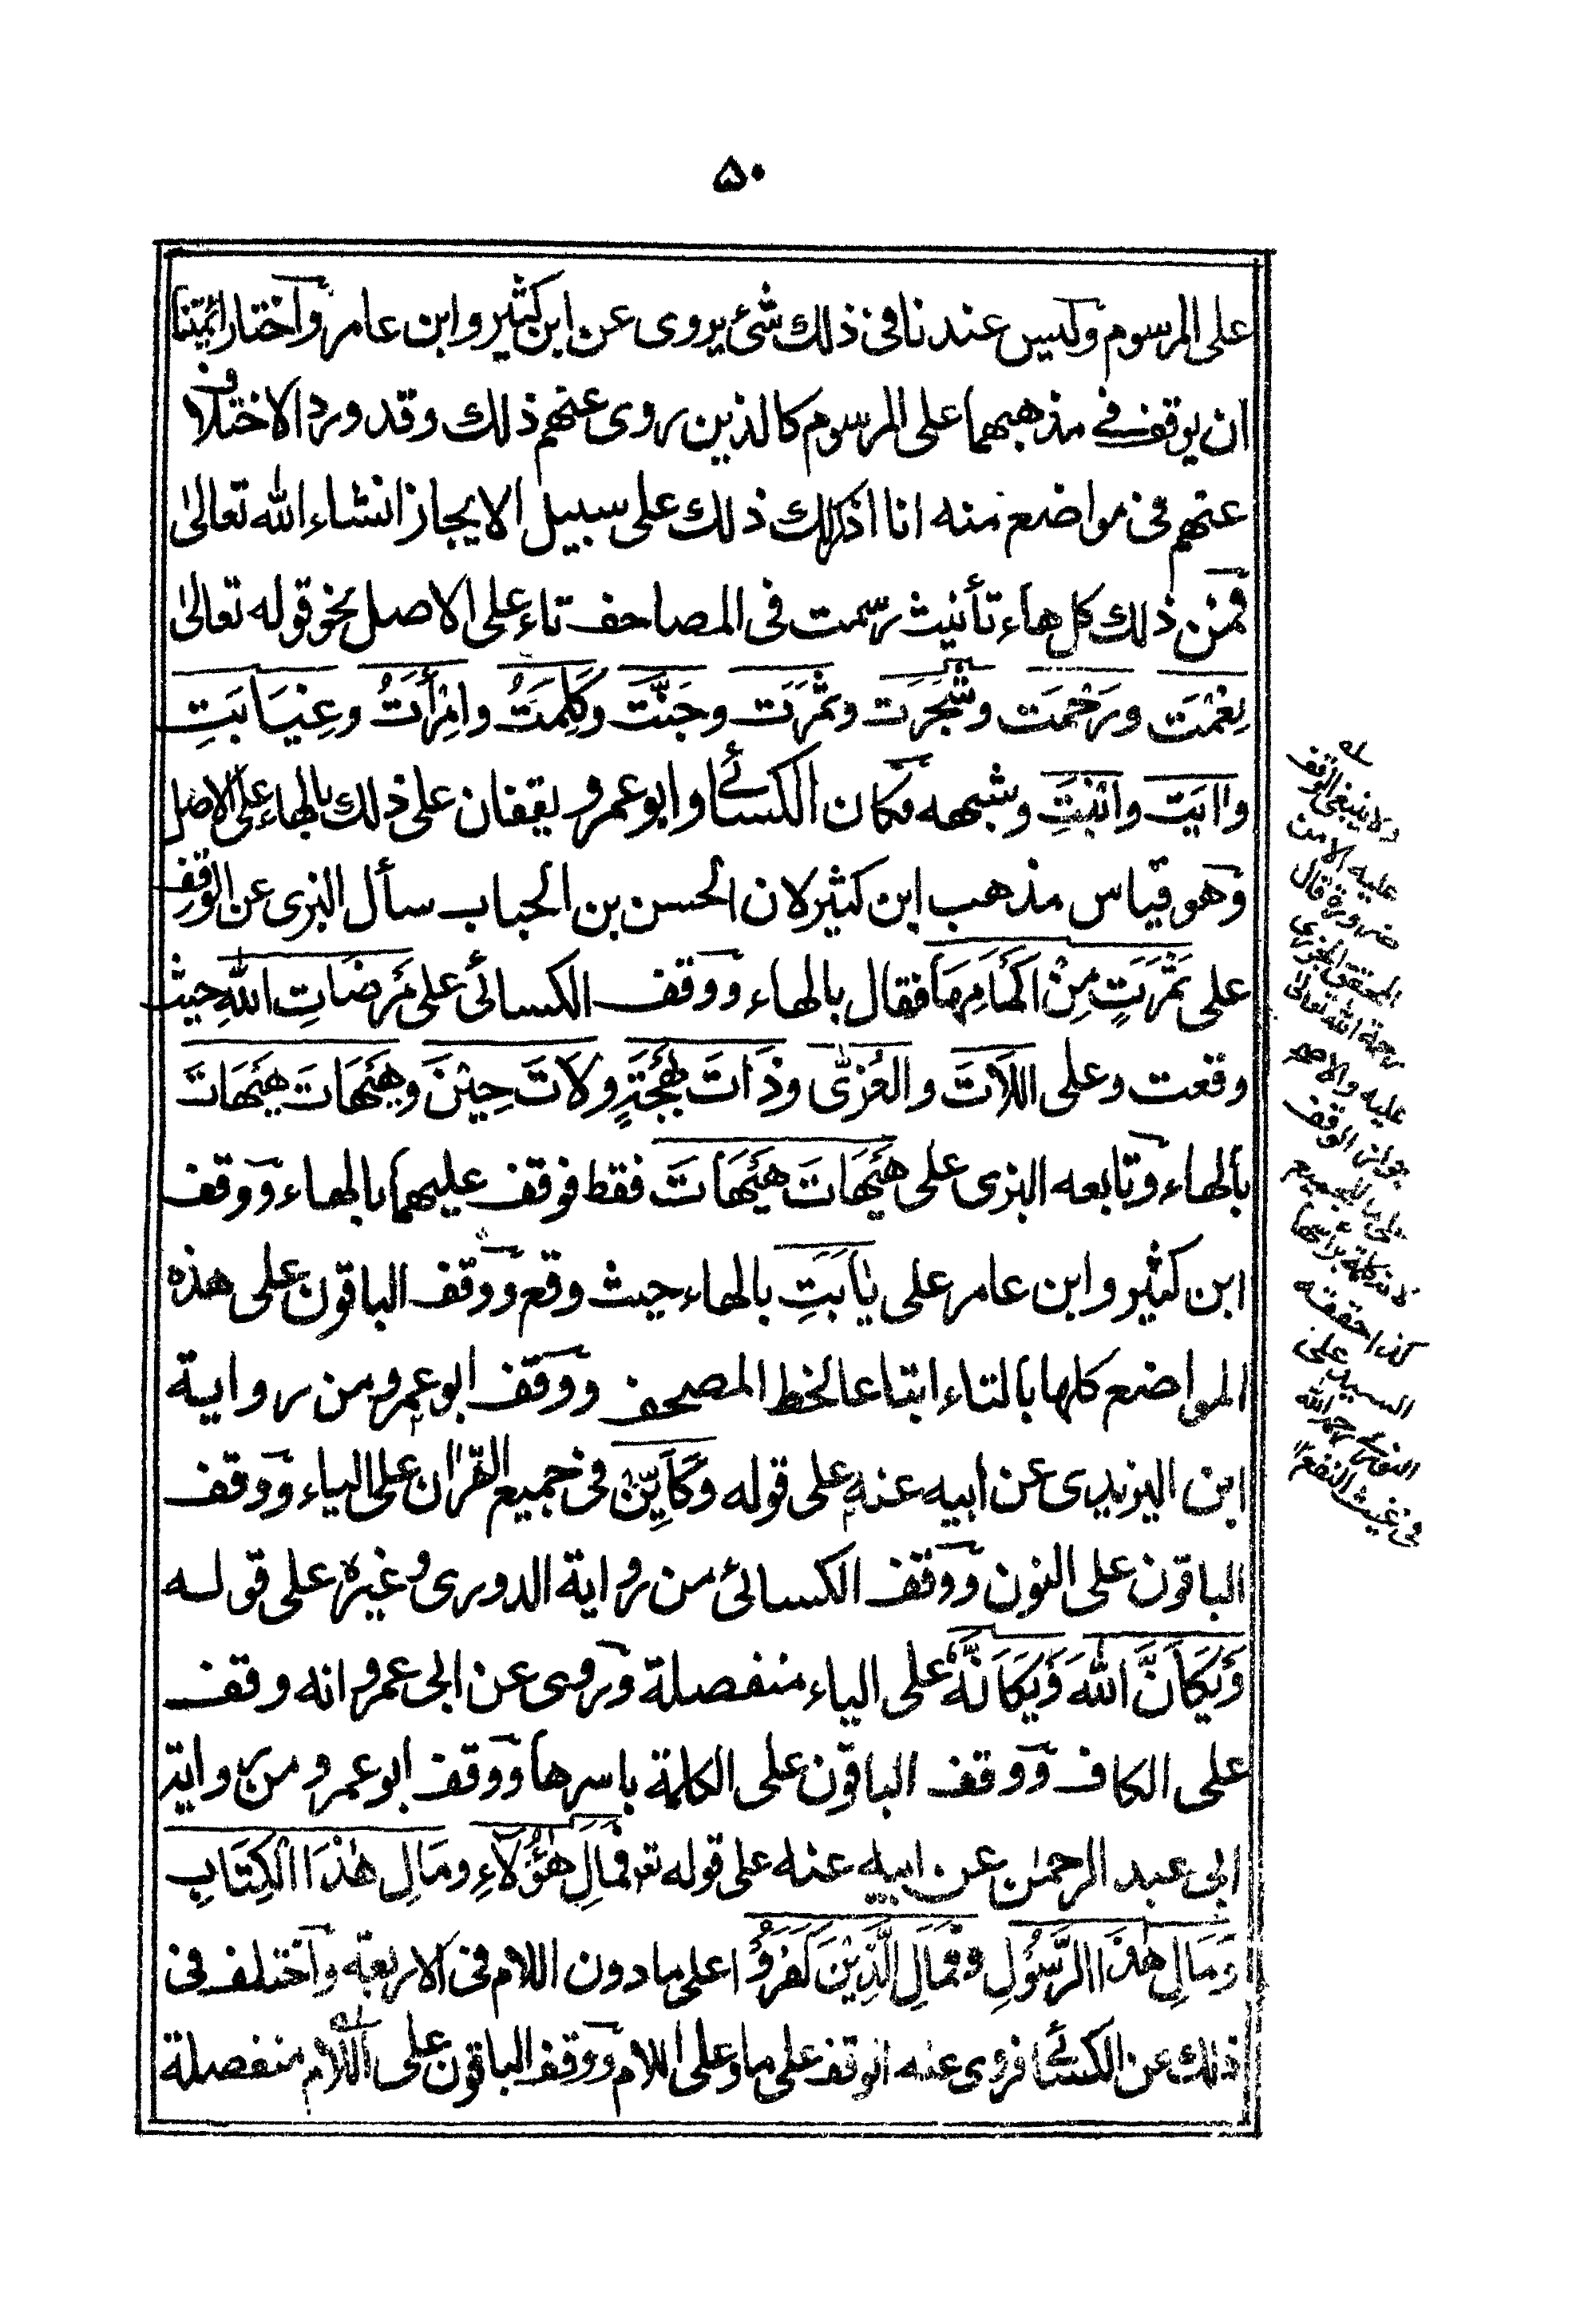 ۵۰
على المرسوم وليس عندنا فى ذلك شئ يروى عن ابن كثير وابن عامر واختار ائمتنا
ان يوقف فى مذهبهما على المرسوم كالذين روى عنهم ذلك وقد ورد الاختلاف
عنهم فى مواضع منه انا اذكر لك ذلك على سبيل الايجاز انشاء الله تعالىٰ
فمن ذلك كل هاء تأنيث رسمت فى المصاحف تاء على الاصل نحو قوله تعالىٰ
نِعْمَتَ ورَحْمَتَ وشَجَرَت وثَمَرَت وجَنَّت وكَلِمَتُ وامْرَأَتُ وغِيَابَتِ
واايَت وابْنَتِ وشبهه فكان الكسائى وابو عمرو يقفان على ذلك بالهاء على الاصل
وهو قياس مذهب ابن كثير لان الحسن بن الحباب سأل البزى عن الوقف
على ثَمَرَتٍ مِنْ اَكْمَامِهَا فقال بالهاء ووقف الكسائى على مَرضَاتِ اللهِ حيث
وقعت وعلى اللَّاتَ والعُزّٰى وذَاتَ بَهْجَةٍ ولَاتَ حِيْنَ وهَيْهَاتَ هَيْهَاتَ
بالهاء وتابعه البزى على هَيْهَاتَ هَيْهَاتَ فقط فوقف عليهما بالهاء ووقف
ابن كثير وابن عامر على يٰاَبَتِ بالهاء حيث وقع ووقف الباقون على هذه
المواضع كلها بالتاء ابتاعا لخط المصحف ووقف ابو عمرو من رواية
ابن اليزيدى عن ابيه عنه على قوله وَكَاَيِّنْ فى جميع القرٰان على الياء ووقف
الباقون على النون ووقف الكسائى من رواية الدورى وغيره على قوله
وَيْكَاَنَّ اللهَ وَيْكَاَنَّهٗ على الياء منفصلة وروى عن ابى عمرو انه وقف
على الكاف ووقف الباقون على الكلمة باسرها ووقف ابو عمرو من رواية
ابى عبد الرحمٰن عن ابيه عنه على قوله تع فَمَالِ هٰؤُلَاءِ ومَالِ هٰذَا الْكِتَابِ
وَمَالِ هٰذَا الرَّسُوْلِ وفَمَالِ الَّذِيْنَ كَفَرُوْا على ما دون اللام فى الاربعة واختلف فى
ذلك عن الكسائى فروى عنه انه وقف على ما وعلى اللام ووقف الباقون على اللام منفصلة
له
ولا ينبغى الوقف
عليه الا من
ضرورة قال
المحقق الجزرى
رحمة الله تعالى
عليه والاصح
جواز الوقف
على ما للجميع
لانه كلمة براسها
كذا حققه
السيد على
النورى رحمه الله
فى غيث النفع